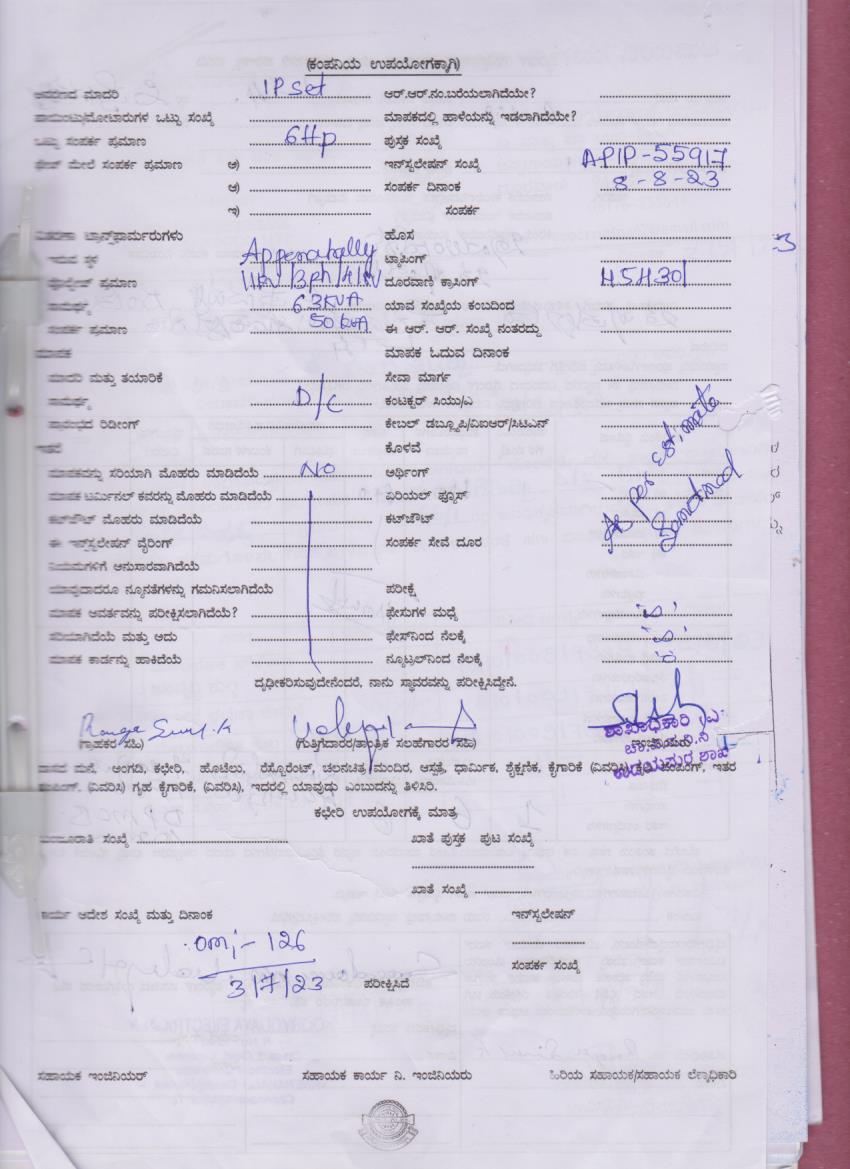 (ಕಂಪನಿಯ ಉಪಯೋಗಕ್ಕಾಗಿ)
ಮಾದರಿ IP Set ಆರ್.ಆರ್.ನಂ.ಬರೆಯಲಾಗಿದೆಯೇ?
ಪಾಯಿಂಟ್ಸು/ಮೋಟಾರುಗಳ ಒಟ್ಟು ಸಂಖ್ಯೆ ಮಾಪಕದಲ್ಲಿ ಹಾಳೆಯನ್ನು ಇಡಲಾಗಿದೆಯೇ?
ಒಟ್ಟು ಸಂಪರ್ಕ ಪ್ರಮಾಣ 6Hp ಪುಸ್ತಕ ಸಂಖ್ಯೆ
ಮೇಲೆ ಸಂಪರ್ಕ ಪ್ರಮಾಣ ಅ) ಇನ್‌ಸ್ಟಲೇಷನ್ ಸಂಖ್ಯೆ APIP-55917
ಆ) ಸಂಪರ್ಕ ದಿನಾಂಕ 8-8-23
ಇ) ಸಂಪರ್ಕ
ವಿತರಣಾ ಟ್ರಾನ್ಸ್‌ಫಾರ್ಮರುಗಳು ಹೊಸ
ಇರುವ ಸ್ಥಳ Appenahally ಟ್ಯಾಪಿಂಗ್
ವೋಲ್ಟೇಜ್ ಪ್ರಮಾಣ ದೂರವಾಣಿ ಕ್ರಾಸಿಂಗ್ H5H301
ಸಾಮರ್ಥ್ಯ 63KVA ಯಾವ ಸಂಖ್ಯೆಯ ಕಂಬದಿಂದ
ಸಂಪರ್ಕ ಪ್ರಮಾಣ 50 KVA ಈ ಆರ್. ಆರ್. ಸಂಖ್ಯೆ ನಂತರದ್ದು
ಮಾಪಕ ಮಾಪಕ ಓದುವ ದಿನಾಂಕ
ಮಾದರಿ ಮತ್ತು ತಯಾರಿಕೆ ಸೇವಾ ಮಾರ್ಗ
ಸಾಮರ್ಥ್ಯ D/C ಕಂಟಕ್ಟರ್ ಸಿಯು/ಎ
ಪ್ರಾರಂಭದ ರಿಡೀಂಗ್ ಕೇಬಲ್ ಡಬ್ಲ್ಯೂಪಿ/ವಿಐಆರ್/ಸಿಟಿಎನ್
ಇತರೆ ಕೊಳವೆ
ಮಾಪಕವನ್ನು ಸರಿಯಾಗಿ ಮೊಹರು ಮಾಡಿದೆಯೆ NO ಅರ್ಥಿಂಗ್
ಮಾಪಕ ಟರ್ಮಿನಲ್ ಕವರನ್ನು ಮೊಹರು ಮಾಡಿದೆಯೆ ಏರಿಯಲ್ ಫ್ಯೂಸ್ As per Estimate
ಕಟ್‌ಔಟ್ ಮೊಹರು ಮಾಡಿದೆಯೆ ಕಟ್‌ಔಟ್ Sanctined
ಈ ಇನ್‌ಸ್ಟಲೇಷನ್ ವೈರಿಂಗ್ ಸಂಪರ್ಕ ಸೇವೆ ದೂರ
ನಿಯಮಗಳಿಗೆ ಅನುಸಾರವಾಗಿದೆಯೆ
ಯಾವುದಾದರೂ ನ್ಯೂನತೆಗಳನ್ನು ಗಮನಿಸಲಾಗಿದೆಯೆ ಪರೀಕ್ಷೆ
ಮಾಪಕ ಆವರ್ತವನ್ನು ಪರೀಕ್ಷಿಸಲಾಗಿದೆಯೆ? ಫೇಸುಗಳ ಮಧ್ಯೆ
ಸರಿಯಾಗಿದೆಯೆ ಮತ್ತು ಅದು ಫೇಸ್‌ನಿಂದ ನೆಲಕ್ಕೆ
ಮಾಪಕ ಕಾರ್ಡನ್ನು ಹಾಕಿದೆಯೆ ನ್ಯೂಟ್ರಲ್‌ನಿಂದ ನೆಲಕ್ಕೆ
ದೃಢೀಕರಿಸುವುದೇನೆಂದರೆ, ನಾನು ಸ್ಥಾವರವನ್ನು ಪರೀಕ್ಷಿಸಿದ್ದೇನೆ.
(ಗ್ರಾಹಕರ ಸಹಿ) (ಗುತ್ತಿಗೆದಾರರ/ತಾಂತ್ರಿಕ ಸಲಹೆಗಾರರ ಸಹಿ) ಶಾಖಾಧಿಕಾರಿ
ವಾಸದ ಮನೆ, ಅಂಗಡಿ, ಕಛೇರಿ, ಹೊಟೆಲು, ರೆಸ್ಟೋರೆಂಟ್, ಚಲನಚಿತ್ರ ಮಂದಿರ, ಆಸ್ಪತ್ರೆ, ಧಾರ್ಮಿಕ, ಶೈಕ್ಷಣಿಕ, ಕೈಗಾರಿಕೆ (ವಿವರಿಸಿ) ಕೃಷಿ ಪಂಪಿಂಗ್, ಇತರ
ಪಂಪಿಂಗ್. (ವಿವರಿಸಿ) ಗೃಹ ಕೈಗಾರಿಕೆ, (ವಿವರಿಸಿ), ಇದರಲ್ಲಿ ಯಾವುಡು ಎಂಬುದನ್ನು ತಿಳಿಸಿರಿ.
ಕಛೇರಿ ಉಪಯೋಗಕ್ಕೆ ಮಾತ್ರ
ಮಂಜೂರಾತಿ ಸಂಖ್ಯೆ ಖಾತೆ ಪುಸ್ತಕ ಪುಟ ಸಂಖ್ಯೆ
ಖಾತೆ ಸಂಖ್ಯೆ
ಕಾರ್ಯ ಆದೇಶ ಸಂಖ್ಯೆ ಮತ್ತು ದಿನಾಂಕ ಇನ್‌ಸ್ಟಲೇಷನ್
om;- 126
3/7/23 ಪರೀಕ್ಷಿಸಿದೆ ಸಂಪರ್ಕ ಸಂಖ್ಯೆ
ಸಹಾಯಕ ಇಂಜಿನಿಯರ್ ಸಹಾಯಕ ಕಾರ್ಯ ನಿ. ಇಂಜಿನಿಯರು ಹಿರಿಯ ಸಹಾಯಕ/ಸಹಾಯಕ ಲೆಕ್ಕಾಧಿಕಾರಿ